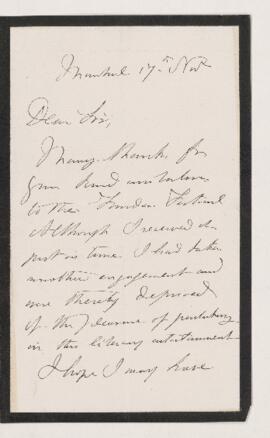 Montreal 17th Nov
Dear Sir,
Many thanks for
your kind invitation
to the Festival
Although I received it
just in time I had taken
another engagement and
was thereby deprived
of the pleasure of partaking
in this literary entertainment
I hope I may have